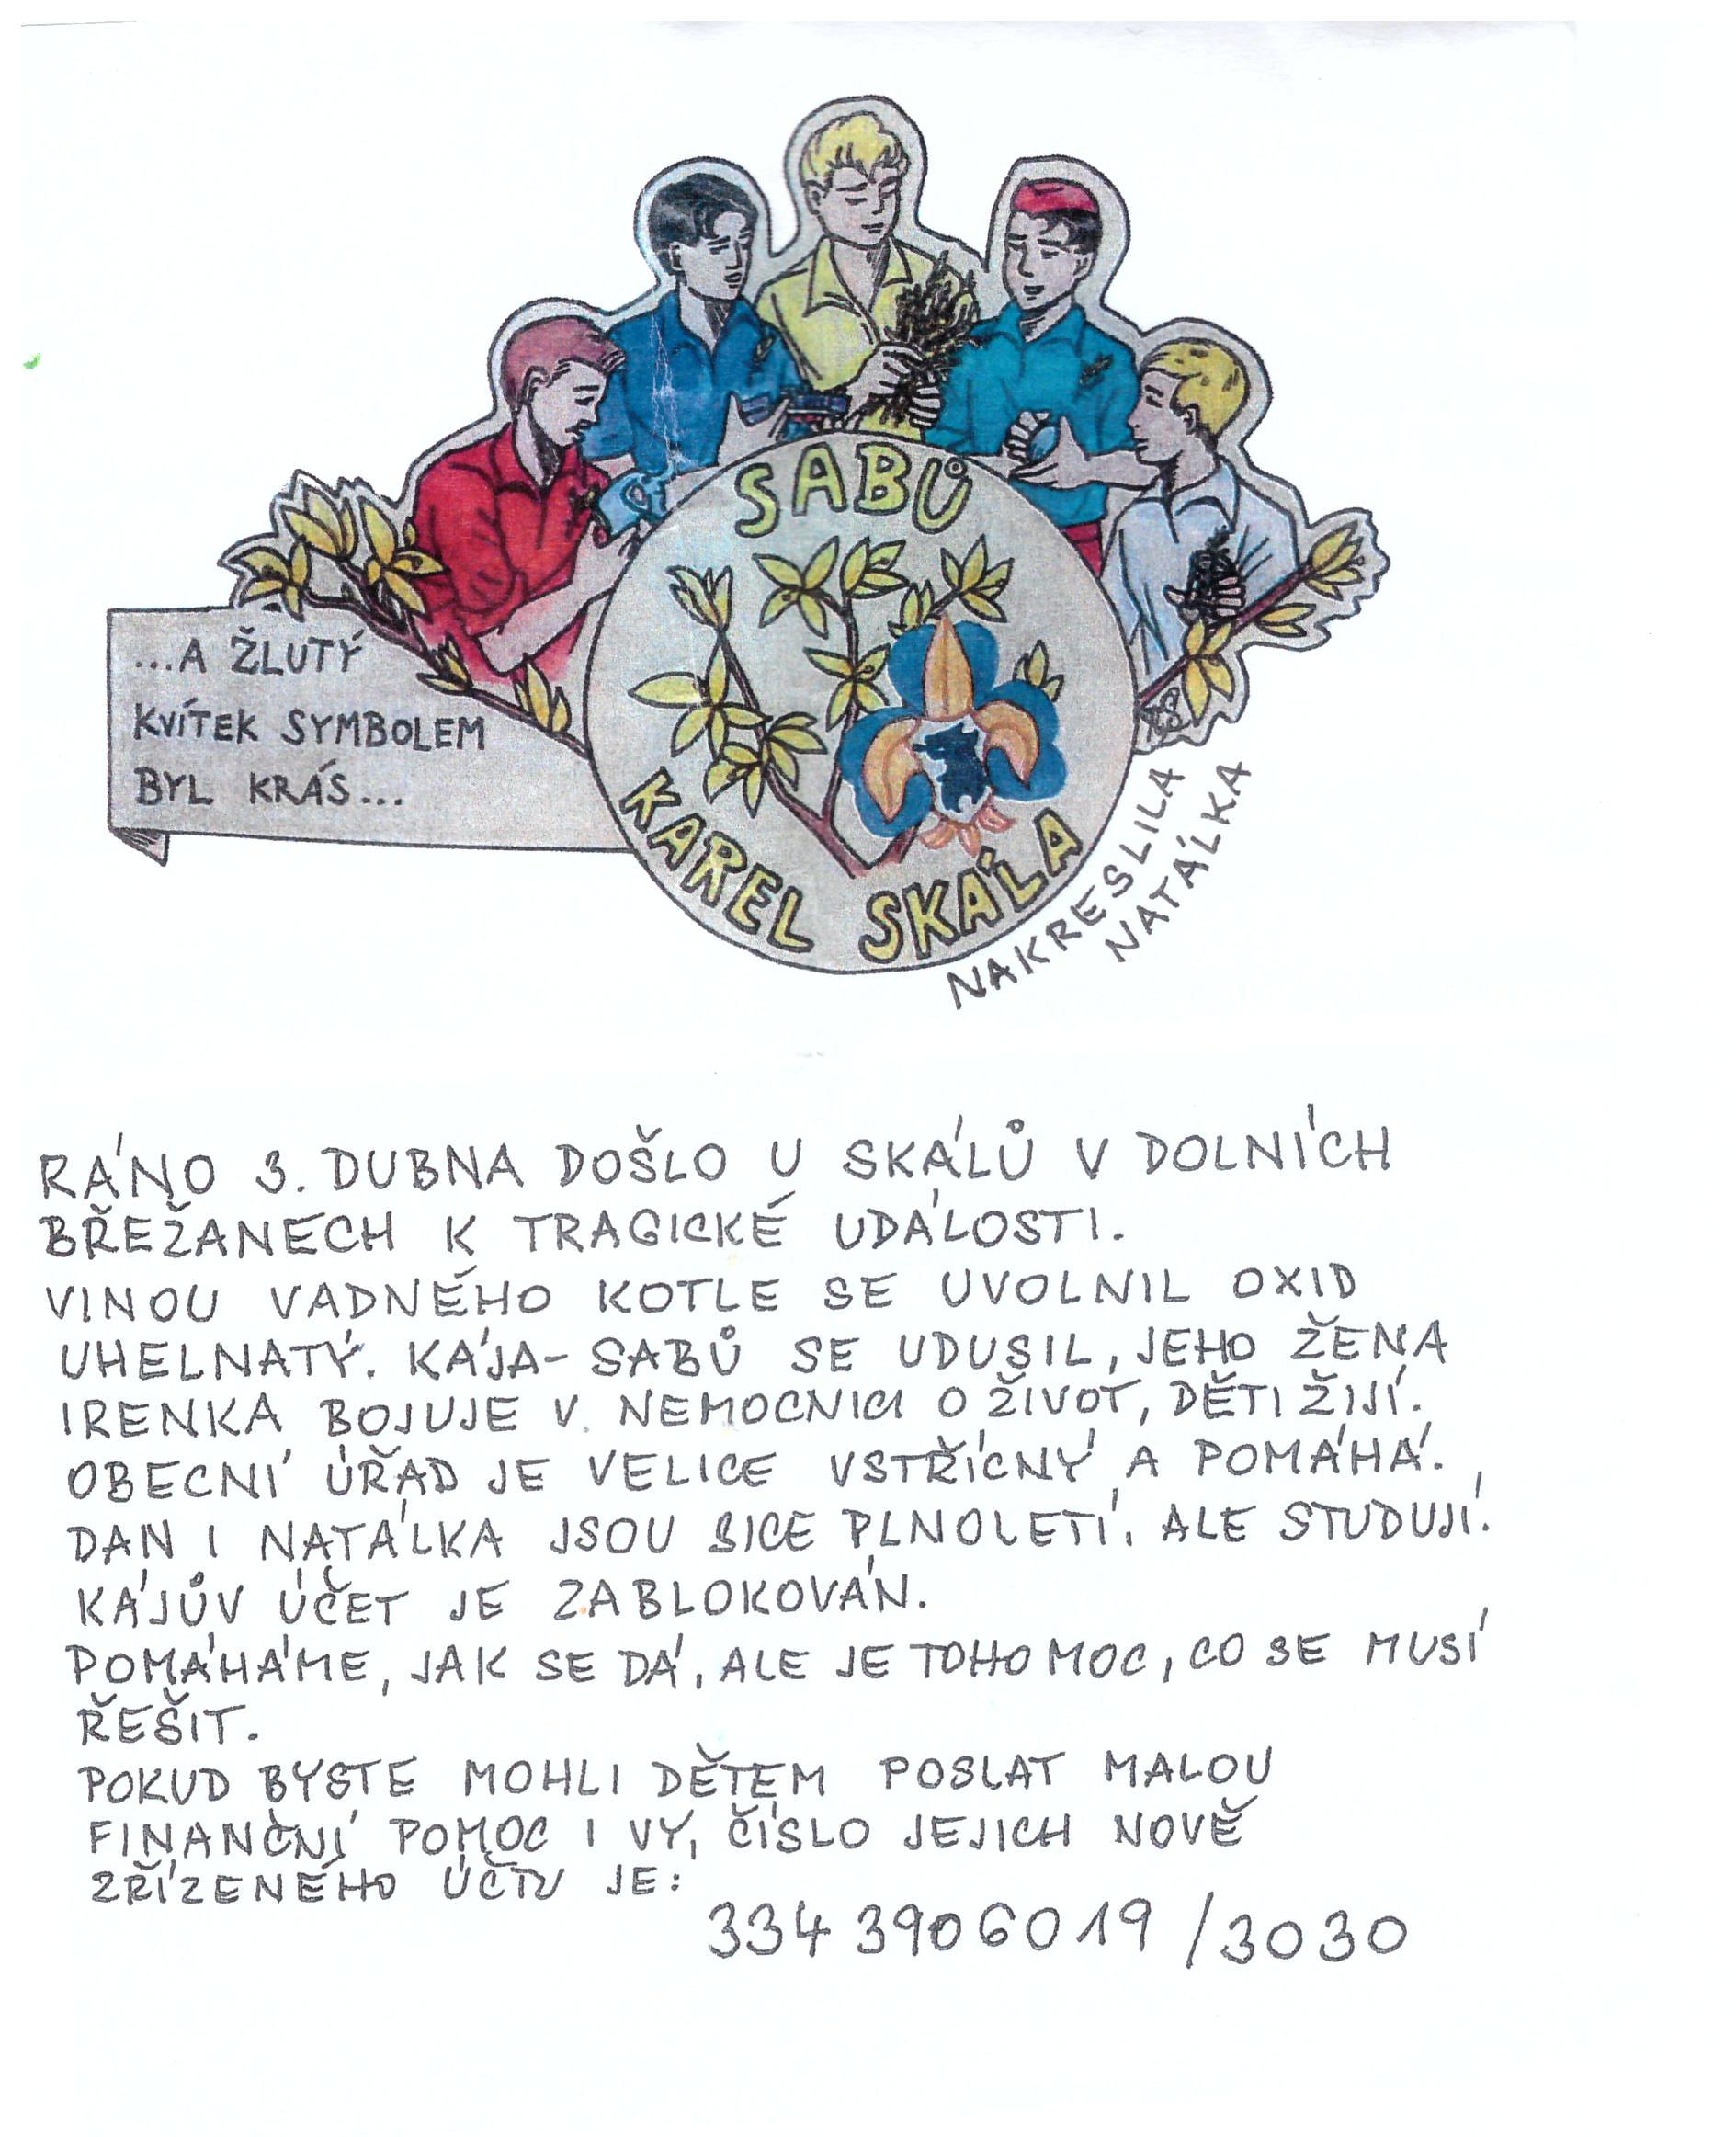 SABŮ
...A ŽLUTÝ
KVÍTEK SYMBOLEM
BYL KRÁS...
KAREL SKÁLA
NAKRESLILA
NATÁLKA
RÁNO 3. DUBNA DOŠLO U SKÁLŮ V DOLNÍCH
BŘEŽANECH K TRAGICKÉ UDÁLOSTI.
VINOU VADNÉHO KOTLE SE UVOLNIL OXID
UHELNATÝ. KÁJA-SABŮ SE UDUSIL, JEHO ŽENA
IRENKA BOJUJE V NEMOCNICI O ŽIVOT, DĚTI ŽIJÍ.
OBECNÍ ÚŘAD JE VELICE VSTŘÍCNÝ A POMÁHÁ.
DAN I NATÁLKA JSOU SICE PLNOLETÍ, ALE STUDUJÍ.
KÁJŮV ÚČET JE ZABLOKOVÁN.
POMÁHÁME, JAK SE DÁ, ALE JE TOHO MOC, CO SE MUSÍ
ŘEŠIT.
POKUD BYSTE MOHLI DĚTEM POSLAT MALOU
FINANČNÍ POMOC I VY, ČÍSLO JEJICH NOVĚ
ZŘÍZENÉHO ÚČTU JE:
334 3906019/3030